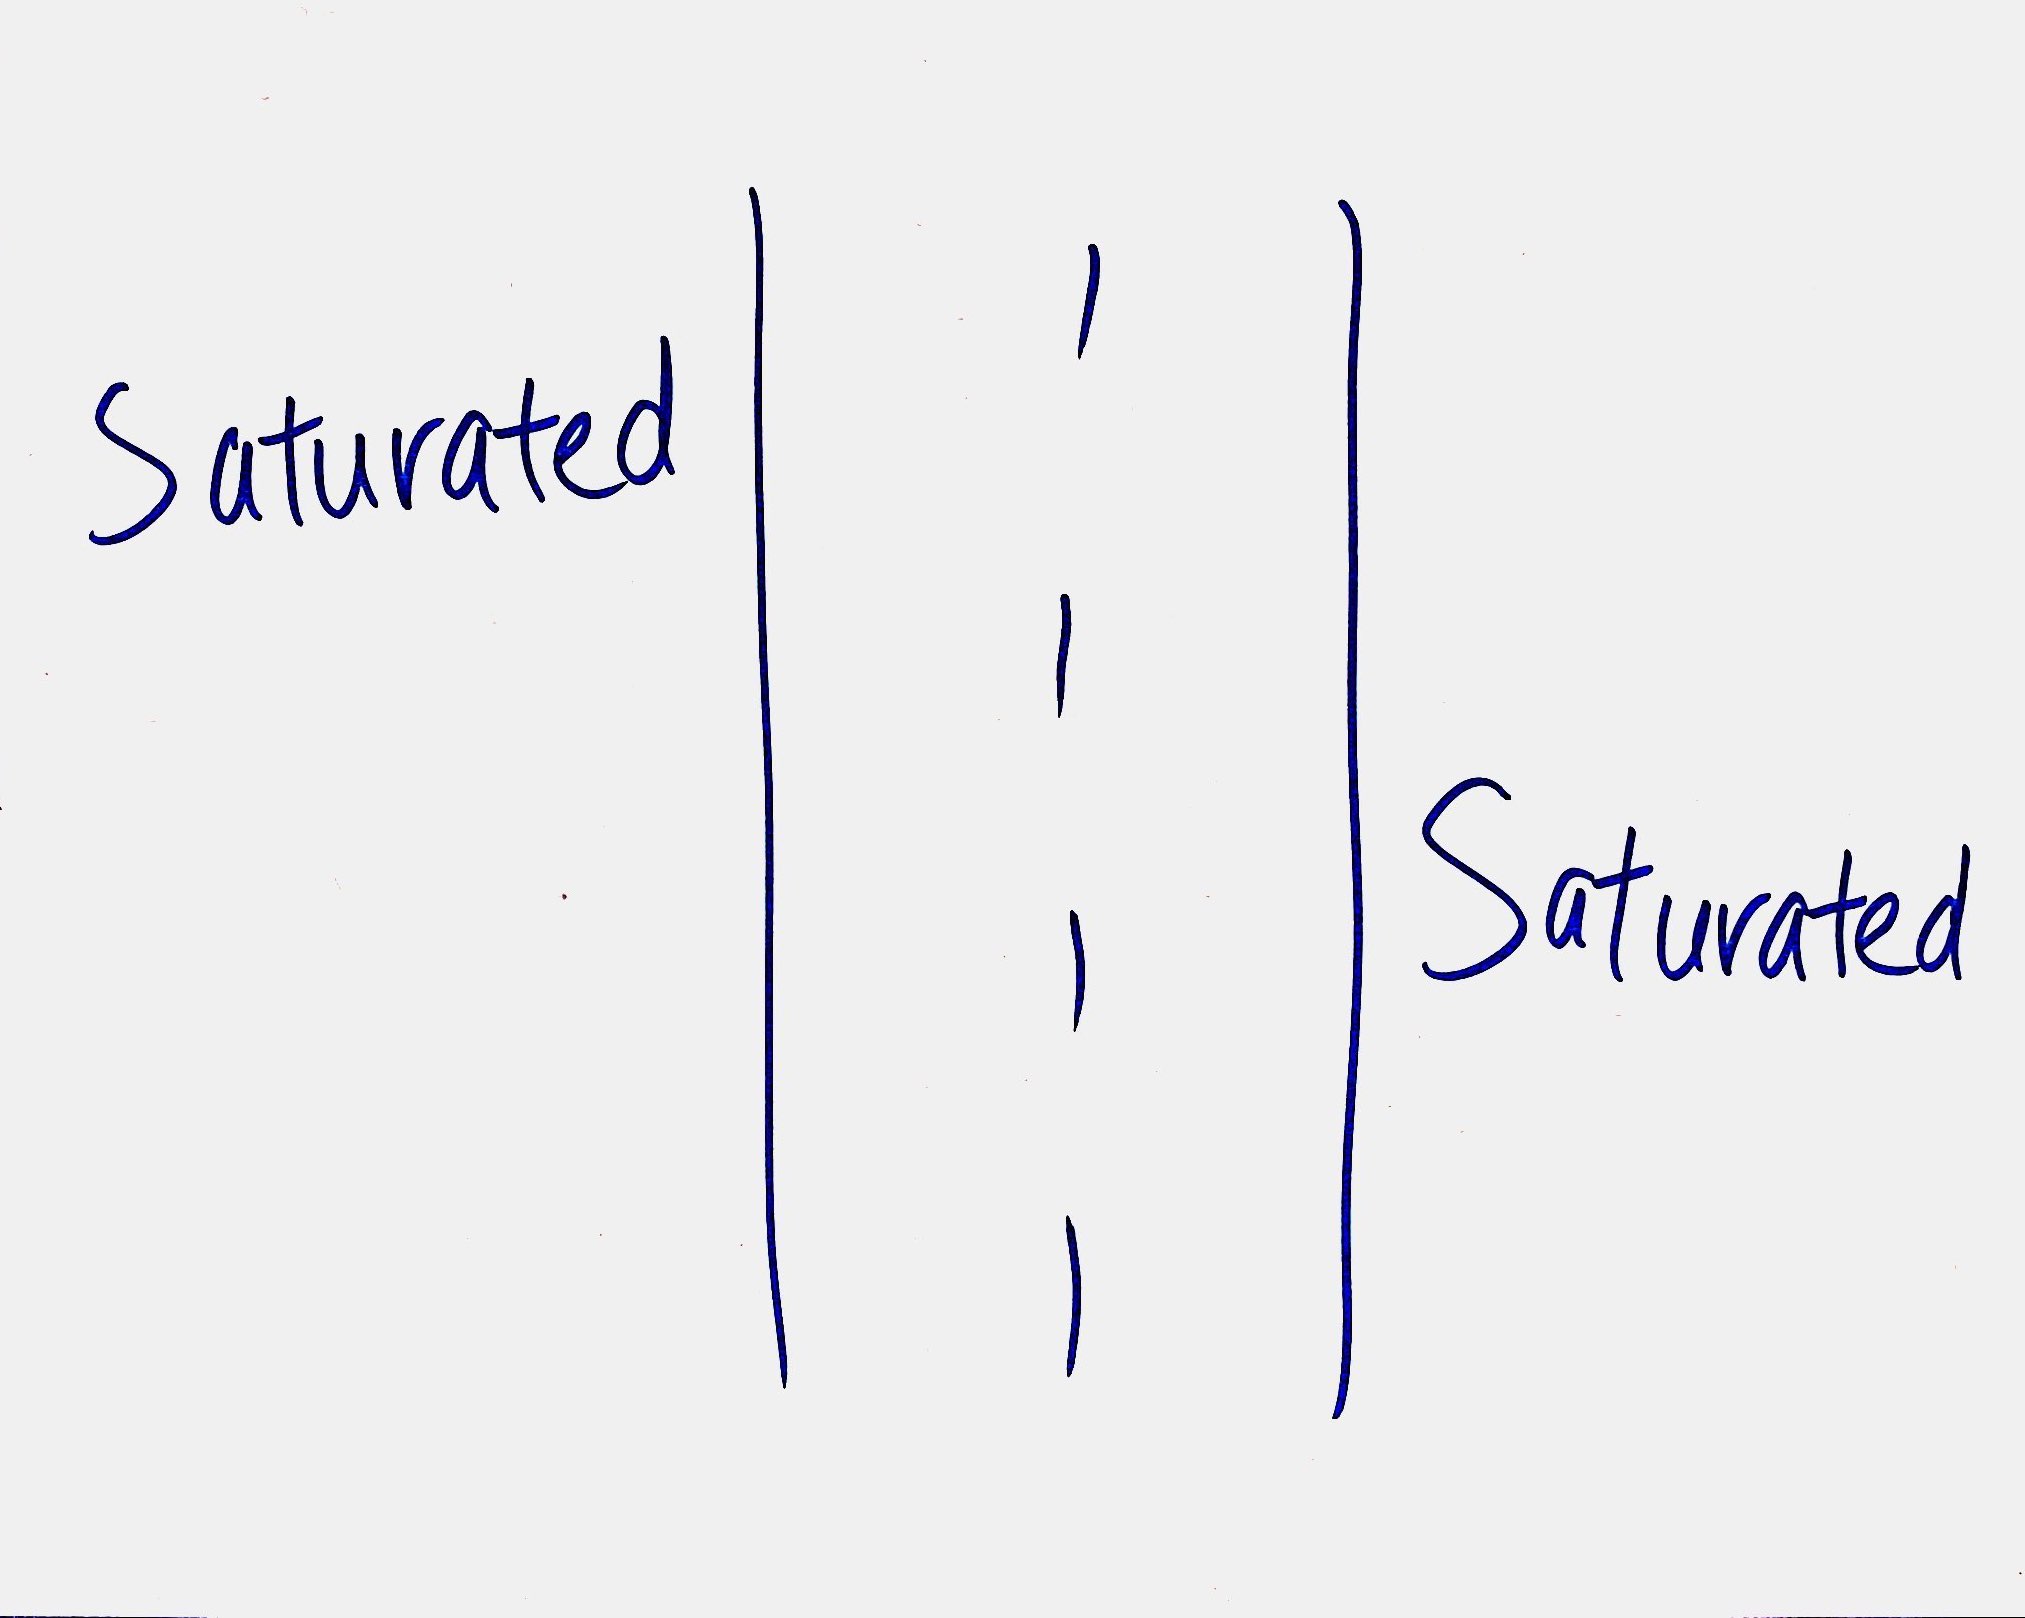 Saturated
Saturated